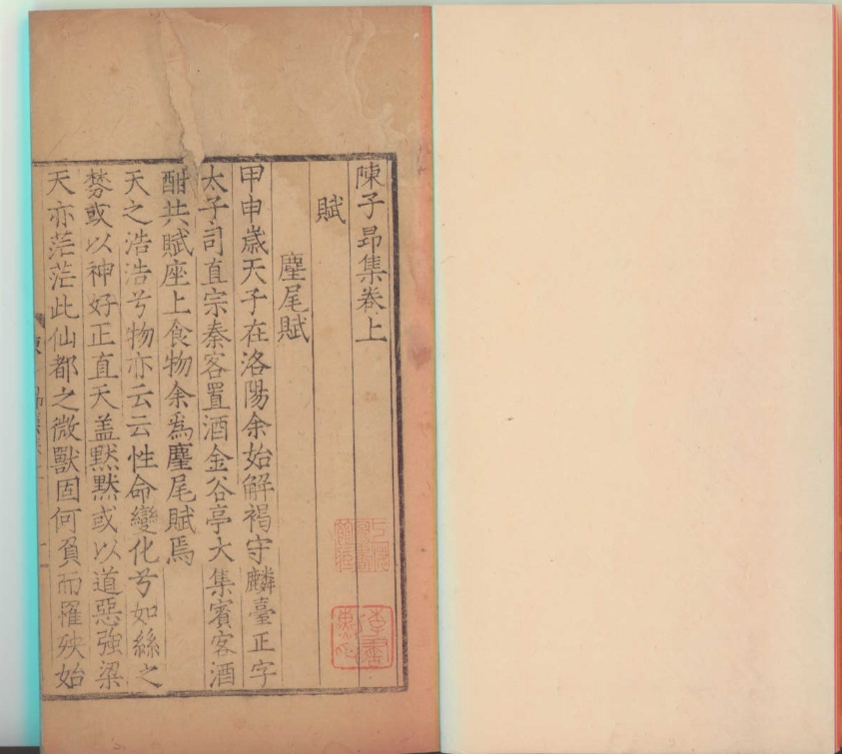 陳子昻集卷上
賦
麈尾賦
甲申歲天子在洛陽余始解褐守麟臺正字
太子司直宗秦客置酒金谷亭大集賓客酒
酣共賦座上食物余爲麈尾賦焉
天之浩浩兮物亦云云性命變化兮如絲之
棼或以神好正直天盖黙黙或以道惡強梁
天亦茫茫此仙都之微獸固何負而罹殃始